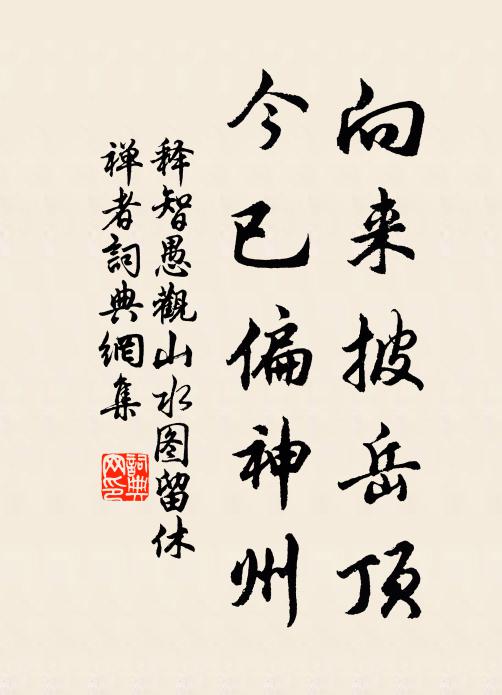 向来披岳顶
今已偏神州
释智愚觀山水图留休
禅者詞典網集
詞典
网印